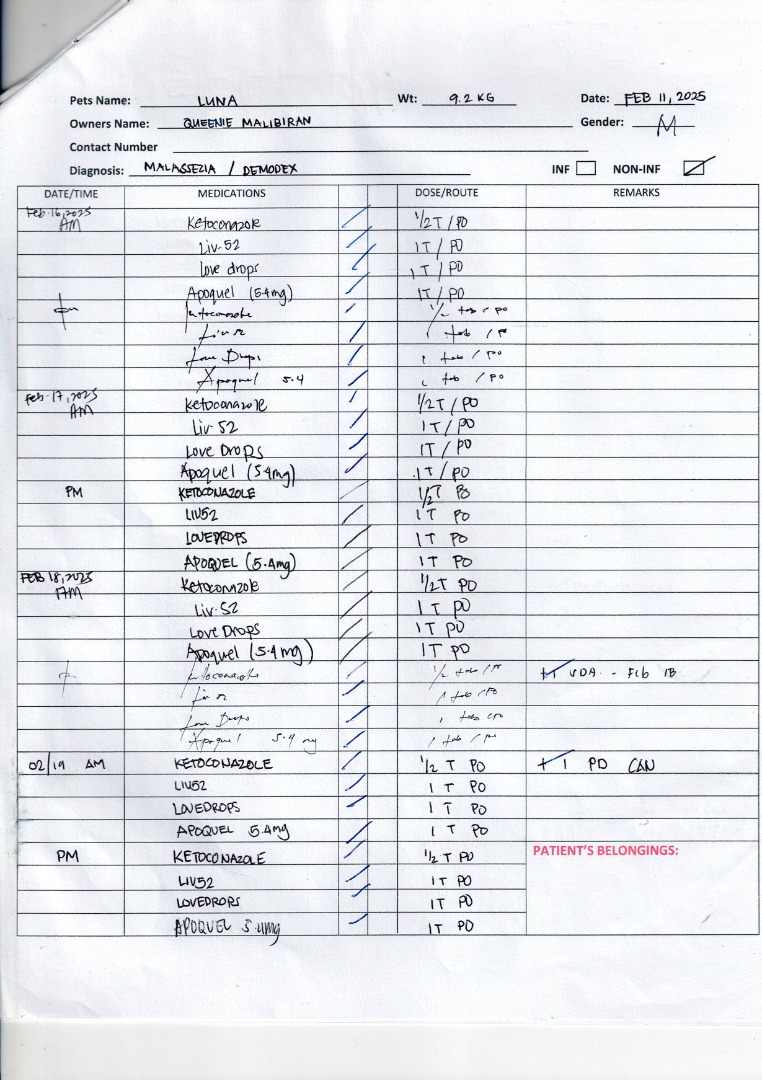 Pets Name: LUNA Wt: 9.2 KG Date: FEB 11, 2025
Owners Name: QUEENIE MALIBIRAN Gender: M
Contact Number
Diagnosis: MALASSEZIA / DEMODEX INF NON-INF
DATE/TIME MEDICATIONS DOSE/ROUTE REMARKS
Feb. 16, 2025 AM Ketoconazole 1/2 T / PO
Liv-52 1T / PO
Love drops 1T / PO
Apoquel (5.4mg) 1T / PO
Ketoconazole 1/2 tab / PO
Liv 52 1 tab / PO
Love Drops 1 tab / PO
Apoquel 5.4 1 tab / PO
Feb. 17, 2025 AM Ketoconazole 1/2T / PO
Liv-52 1T / PO
Love Drops 1T / PO
Apoquel (5.4mg) 1T / PO
PM KETOCONAZOLE 1/2T PO
LIV52 1T PO
LOVEDROPS 1T PO
APOQUEL (5.4mg) 1T PO
FEB 18, 2025 AM Ketoconazole 1/2T PO
Liv-52 1T PO
Love Drops 1T PO
Apoquel (5.4mg) 1T PO
Ketoconazole 1/2 tab / PO VDA - Feb 18
Liv 52 1 tab / PO
Love Drops 1 tab / PO
Apoquel 5.4 mg 1 tab / PO
02/19 AM KETOCONAZOLE 1/2 T PO + 1 PD CAN
LIV52 1 T PO
LOVEDROPS 1 T PO
APOQUEL 5.4mg 1 T PO
PATIENT'S BELONGINGS:
PM KETOCONAZOLE 1/2 T PO
LIV52 1T PO
LOVEDROPS 1T PO
APOQUEL 5.4mg 1T PO